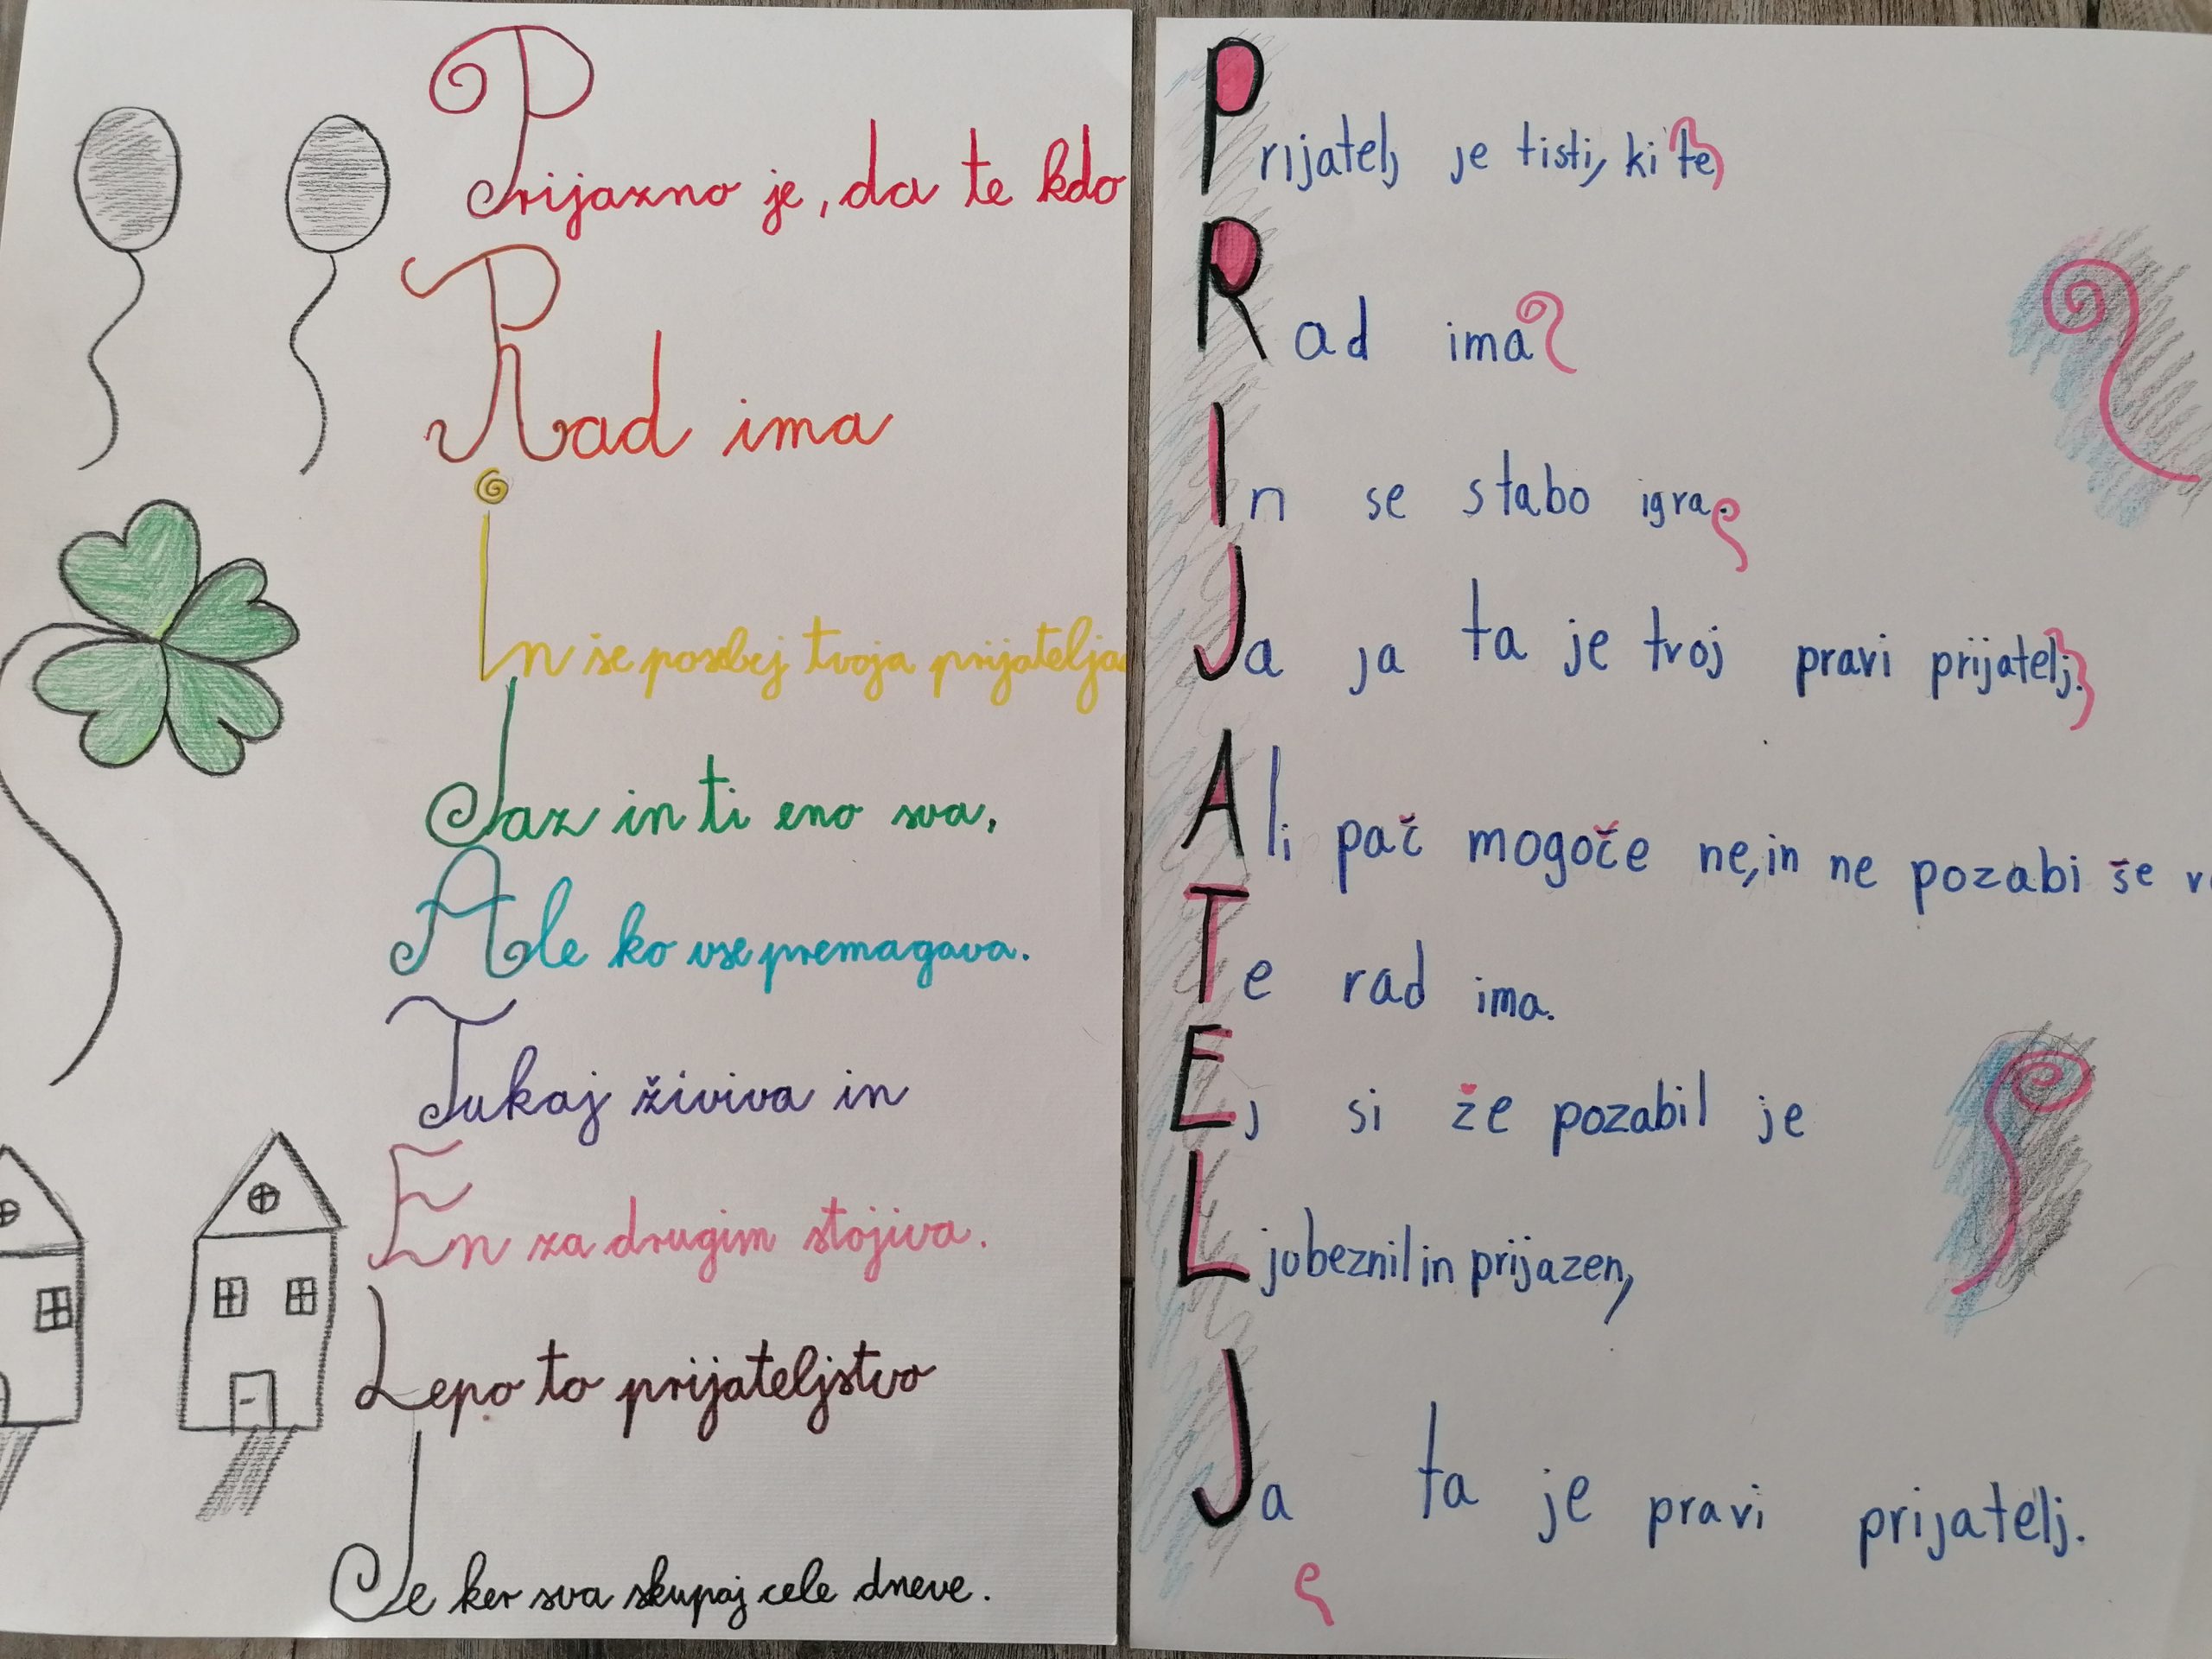 Prijazno je, da te kdo
Rad ima
In še posebej tvoja prijatelja
Jaz in ti eno sva,
Ale ko vse premagava.
Tukaj živiva in
En za drugim stojiva.
Lepo to prijateljstvo
Je ker sva skupaj cele dneve.
Prijatelj je tisti, ki te
Rad ima
In se stabo igra.
Ja ja ta je tvoj pravi prijatelj.
Ali pač mogoče ne, in ne pozabi še
Te rad ima.
Ej si že pozabil je
Ljubeznil in prijazen,
Ja ta je pravi prijatelj.